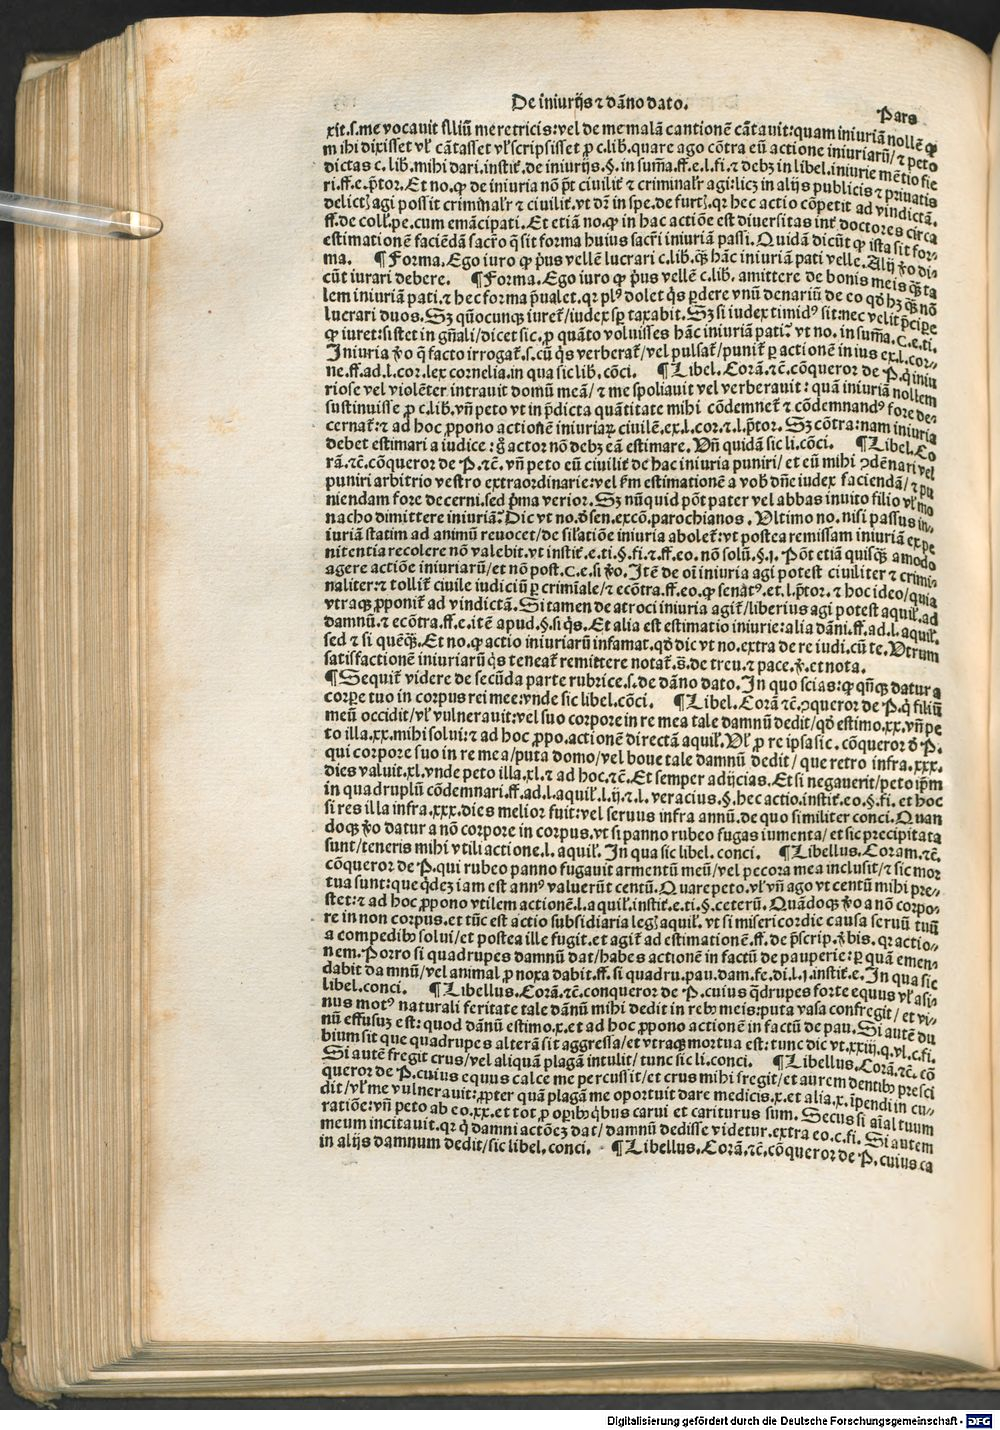 De iniurijs ⁊ dãno dato.
Pars
xit.s.me vocauit filiũ meretricis:vel de me malã cantionẽ cãtauit:quam iniuriã nollẽ ꝙ
mihi dixisset vł cãtasset vł scripsisset ꝓ c.lib.quare ago cõtra eũ actione iniuriarũ/⁊ peto
dictas c. lib.mihi dari.instit̃.de iniurijs.§.in summa.ff.e.l.fi.⁊ debꝫ in libel.iniurie mẽtio fie
ri.ff.e.p̃tor.Et no.ꝙ de iniuria nõ p̃t ciuilit̃ ⁊ criminalr̃ agi:licꝫ in alijs publicis ⁊ priuatis
delictꝭ agi possit criminalr̃ ⁊ ciuilit̃.vt dr̃ in spe.de furtꝭ.qr hec actio cõpetit ad vindictã.
ff.de coll̃.pe.cum emãcipati. Et etiã no.ꝙ in hac actiõe est diuersitas int̃ doctores circa
estimationẽ faciẽdã sacr̃o q̃ sit forma huius sacr̃i iniuriã passi. Quidã dicũt ꝙ ista sit for-
ma. ¶ Forma. Ego iuro ꝙ p̃us vellẽ lucrari c.lib.q̃ꝫ hãc iniuriã pati velle. Alij ꝟo di-
cũt iurari debere. ¶ Forma. Ego iuro ꝙ p̃us vellẽ c.lib. amittere de bonis meis q̃ꝫ ta
lem iniuriã pati.⁊ hec forma p̃ualet.qr plꝰ dolet q̃s ꝑdere vnũ denariũ de eo qd̃ hꝫ q̃ꝫ nõ
lucrari duos. Sꝫ qñocunqꝫ iuret̃/iudex sꝑ taxabit. Sꝫ si iudex timidꝰ sit:nec velit p̃cipe
ꝙ iuret:sistet in gñali/dicet sic.ꝓ quãto voluisses hãc iniuriã pati? vt no. in sum̃a.C.e.ti.
Iniuria ꝟo q̃ facto irrogat̃.s.cũ q̃s verberat̃/vel pulsat̃/punit̃ ꝑ actionẽ in ius ex.l.cor-
ne.ff.ad.l.cor.lex cornelia.in qua sic lib. cõci. ¶ Libel. Corã.⁊c̃.cõqueror de P.q̃ iniu
riose vel violẽter intrauit domũ meã/ ⁊ me spoliauit vel verberauit: quã iniuriã nollem
sustinuisse ꝓ c.lib.vñ peto vt in p̃dicta quãtitate mihi cõdemnet̃ ⁊ cõdemnandꝰ fore de-
cernat̃:⁊ ad hoc ꝓpono actionẽ iniuriaꝝ ciuilẽ.ex.l.cor.⁊.l.p̃tor. Sꝫ cõtra:nam iniuria
debet estimari a iudice: g̃ actor nõ debꝫ eã estimare. Vñ quidã sic li.cõci. ¶ Libel. Co
rã.⁊c̃.cõqueror de P.⁊c̃. vñ peto eũ ciuilit̃ de hac iniuria puniri/ et eũ mihi ꝯdẽnari vel
puniri arbitrio vestro extraordinarie:vel ẜm estimationẽ a vob̃ dñe iudex faciendã/ ⁊ pu
niendam fore decerni.sed p̃ma verior. Sꝫ nũquid põt pater vel abbas inuito filio vł mo
nacho dimittere iniuriã? Dic vt no.ꝺ̃ sen.excõ.parochianos. Vltimo no. nisi passus in-
iuriã statim ad animũ reuocet/de sił̃atiõe iniuria abolet̃:vt postea remissam iniuriã ex pe
nitentia recolere nõ valebit.vt instit̃.e.ti.§.fi.⁊.ff.eo. nõ solũ.§.j. Põt etiã quisq̃ꝫ a modo
agere actiõe iniuriarũ/et nõ post.C.e.si ꝟo. Itẽ de oĩ iniuria agi potest ciuiliter ⁊ crimi-
naliter:⁊ tollit̃ ciuile iudiciũ ꝑ crimĩale/⁊ ecõtra.ff.eo.ꝙ senatꝰ.et.l.p̃tor. ⁊ hoc ideo/quia
vtraqꝫ ꝓponit̃ ad vindictã. Si tamen de atroci iniuria agit̃/liberius agi potest aquił.ad
damnũ.⁊ ecõtra.ff.e.itẽ apud.§.si q̃s. Et alia est estimatio iniurie:alia dãni.ff.ad.l.aquił.
sed ⁊ si quẽq̃ꝫ. Et no.ꝙ actio iniuriarũ infamat.qd̃ dic vt no.extra de re iudi.cũ te. Vtrum
satisfactionẽ iniuriarũ q̃s teneat̃ remittere notat̃.s̃.de treu.⁊ pace.ꝟ.et nota.
¶ Sequit̃ videre de secũda parte rubrice.s.de dãno dato. In quo scias:ꝙ qñqꝫ datur a
corpe tuo in corpus rei mee:vnde sic libel.cõci. ¶ Libel. Corã ⁊c̃.ꝯqueror de P.q̃ filiũ
meũ occidit/vł vulnerauit:vel suo corpore in re mea tale damnũ dedit/qd̃ estimo.xx.vñ pe
to illa.xx.mihi solui:⁊ ad hoc ꝓpo.actionẽ directã aquił. Vł ꝓ re ipsa sic. cõqueror ꝺ̃ P.
qui corpore suo in re mea/puta domo/vel boue tale damnũ dedit/ que retro infra.xxx.
dies valuit.xl.vnde peto illa.xl.⁊ ad hoc.⁊c̃. Et semper adijcias. Et si negauerit/peto ip̃m
in quadruplũ cõdemnari.ff.ad.l.aquił.l.ij.⁊.l. veracius.§.hec actio.instit̃.eo.§.fi. et hoc
si res illa infra.xxx.dies melior fuit:vel seruus infra annũ.de quo similiter conci. Quan
doqꝫ ꝟo datur a nõ corpore in corpus.vt si panno rubeo fugas iumenta/ et sic precipitata
sunt/teneris mihi vtili actione.l. aquił. In qua sic libel. conci. ¶ Libellus. Coram.⁊c̃.
cõqueror de P.qui rubeo panno fugauit armentũ meũ/vel pecora mea inclusit/⁊ sic mor
tua sunt:que q̃dẽ iam est annꝰ valuerũt centũ. Quare peto.vł vñ ago vt centũ mihi pre-
stet:⁊ ad hoc ꝓpono vtilem actionẽ.l.aquił.instit̃.e.ti.§.ceterũ. Quãdoqꝫ ꝟo a nõ corpo-
re in non corpus.et tũc est actio subsidiaria legꝭ aquił. vt si misericordie causa seruũ tuũ
a compedibꝰ solui/et postea ille fugit.et agit̃ ad estimationẽ.ff.de p̃scrip.ꝟbis. qr actio-
nem. Porro si quadrupes damnũ dat/habes actionem in factũ de pauperie:ꝑ quã emen-
dabit damnũ/vel animal ꝓ noxa dabit.ff.si quadru.pau.dam.fe.di.l.j.instit̃.e. In qua sic
libel.conci. ¶ Libellus. Corã.⁊c̃.conqueror de P.cuius q̃drupes forte equus vł asi-
nus motꝰ naturali feritate tale dãnũ mihi dedit in rebꝰ meis:puta vasa confregit/ et vi-
nũ effusuꝫ est: quod dãnũ estimo.x.et ad hoc ꝓpono actionẽ in factũ de pau. Si autẽ du
bium sit que quadrupes alterã sit aggressa/et vtraqꝫ mortua est:tunc dic vt.xxiij.q.vl.c.fi.
Si autẽ fregit crus/vel aliquã plagã intulit/tunc sic li.conci. ¶ Libellus. Corã.⁊c̃. cõ
queror de P.cuius equus calce me percussit/et crus mihi fregit/et aurem dentibꝰ presci
dit/vł me vulnerauit:ꝓpter quã plagã me oportuit dare medicis.x.et alia.x.ĩpendi in cu-
ratiõe:vñ peto ab eo.xx.et tot ꝓ oꝑibꝰ q̃bus carui et cariturus sum. Secus si aĩal tuum
meum incitauit.qr q̃ damni actõeꝫ dat/ damnũ dedisse videtur.extra eo.c.fi. Si autem
in alijs damnum dedit/sic libel.conci. ¶ Libellus. Corã.⁊c̃.cõqueror de P.cuius ca
Digitalisierung gefördert durch die Deutsche Forschungsgemeinschaft - DFG